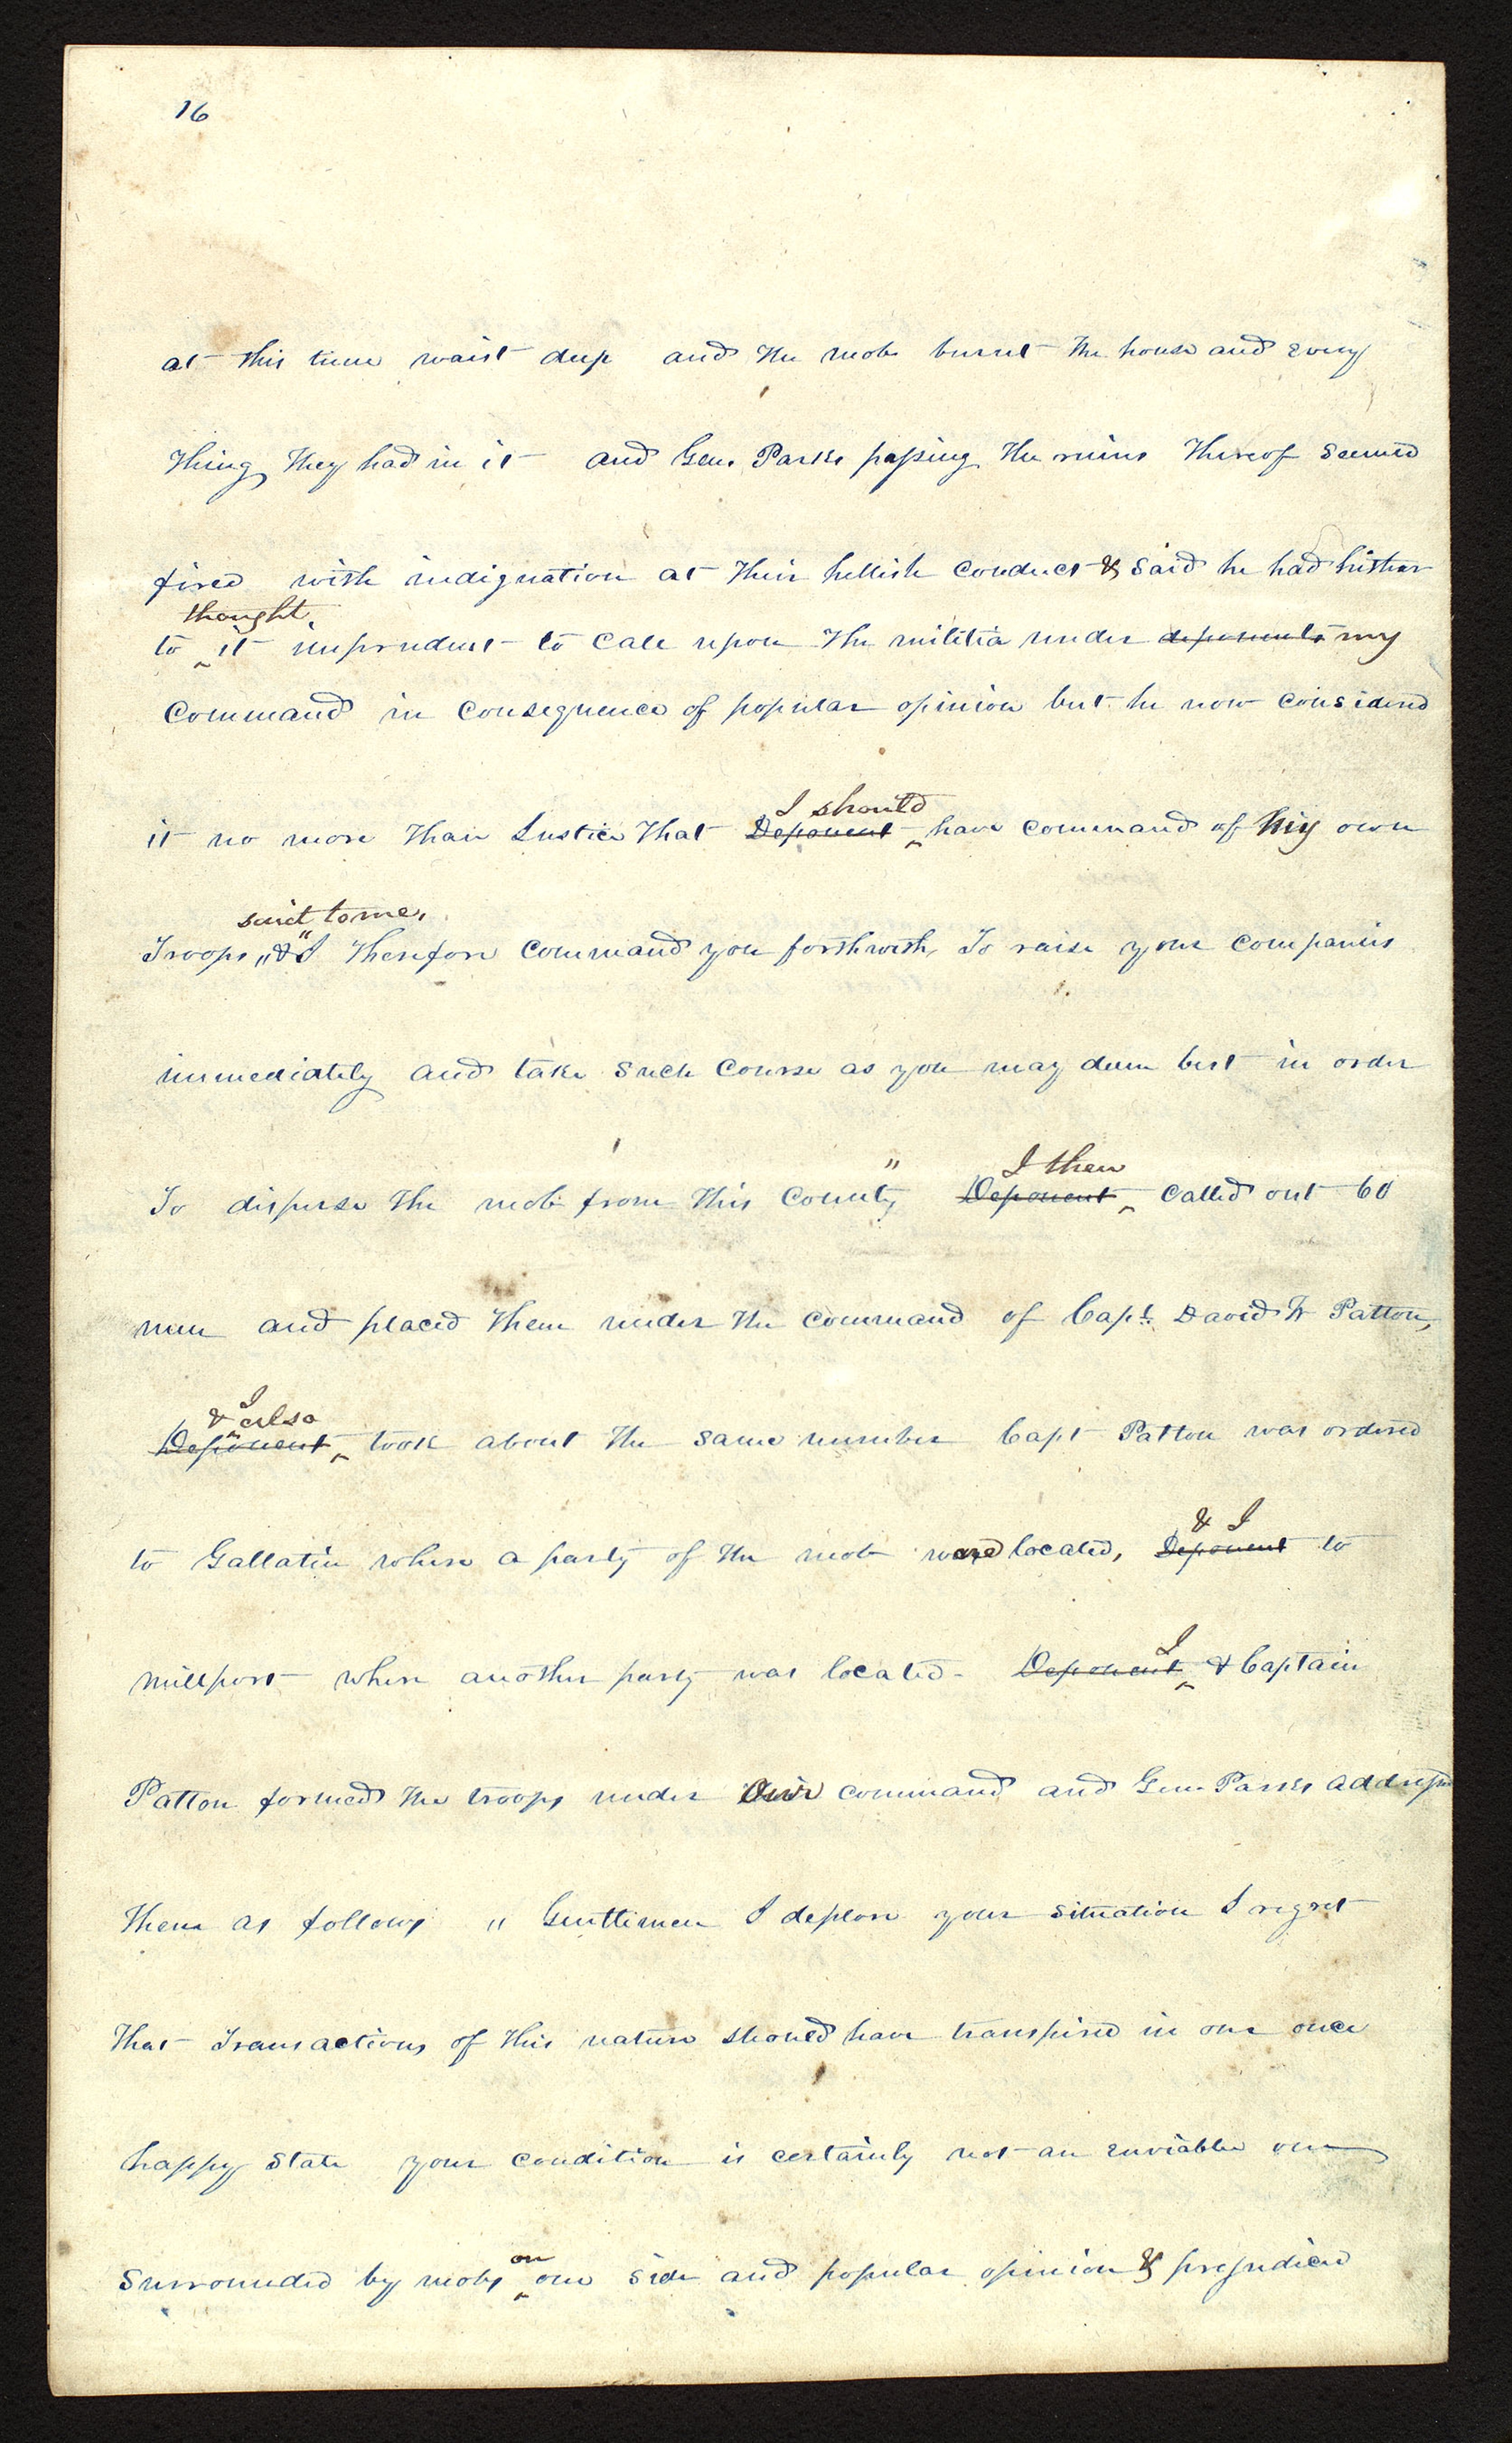 16
at this time waist deep and the mob burnt the house and every
thing they had in it and Gen. Parks passing the ruins thereof seemed
fired with indignation at their hellish conduct & said he had hither
thought
to ^ it imprudent to call upon the militia under deponents my
command in consequence of popular opinion but he now considered
I should
it no more than Justice that Deponent ^ have command of my own
said to me,
Troops, "&" I therefore command you forthwith, To raise your companies
immediately and take such course as you may deem best in order
I then
To disperse the mob from this County" Deponent ^ called out 60
men and placed them under the command of Capt. David W Patton,
I
& ^ also
Deponent ^ took about the same number Capt Patton was ordered
& I
to Gallatin where a party of the mob were located, Deponent to
I
millport where another party was located - Deponent ^ & Captain
Patton formed the troops under Our command and Gen Parks address
them as follows " Genttimen I deplore your situation I regret
that Transactions of this nature should have transpired in our once
happy State your condition is certainly not an enviable one
on
Surrounded by mobs ^ one side and popular opinion & prejudice